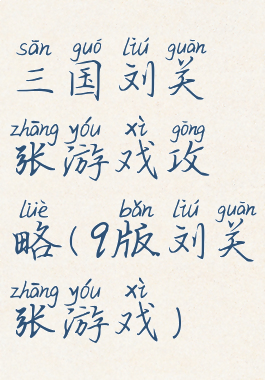 sān guó liú guān
三国刘关
zhāng yóu xì gōng
张游戏攻
lüè bǎn liú guān
略(9版刘关
zhāng yóu xì
张游戏)